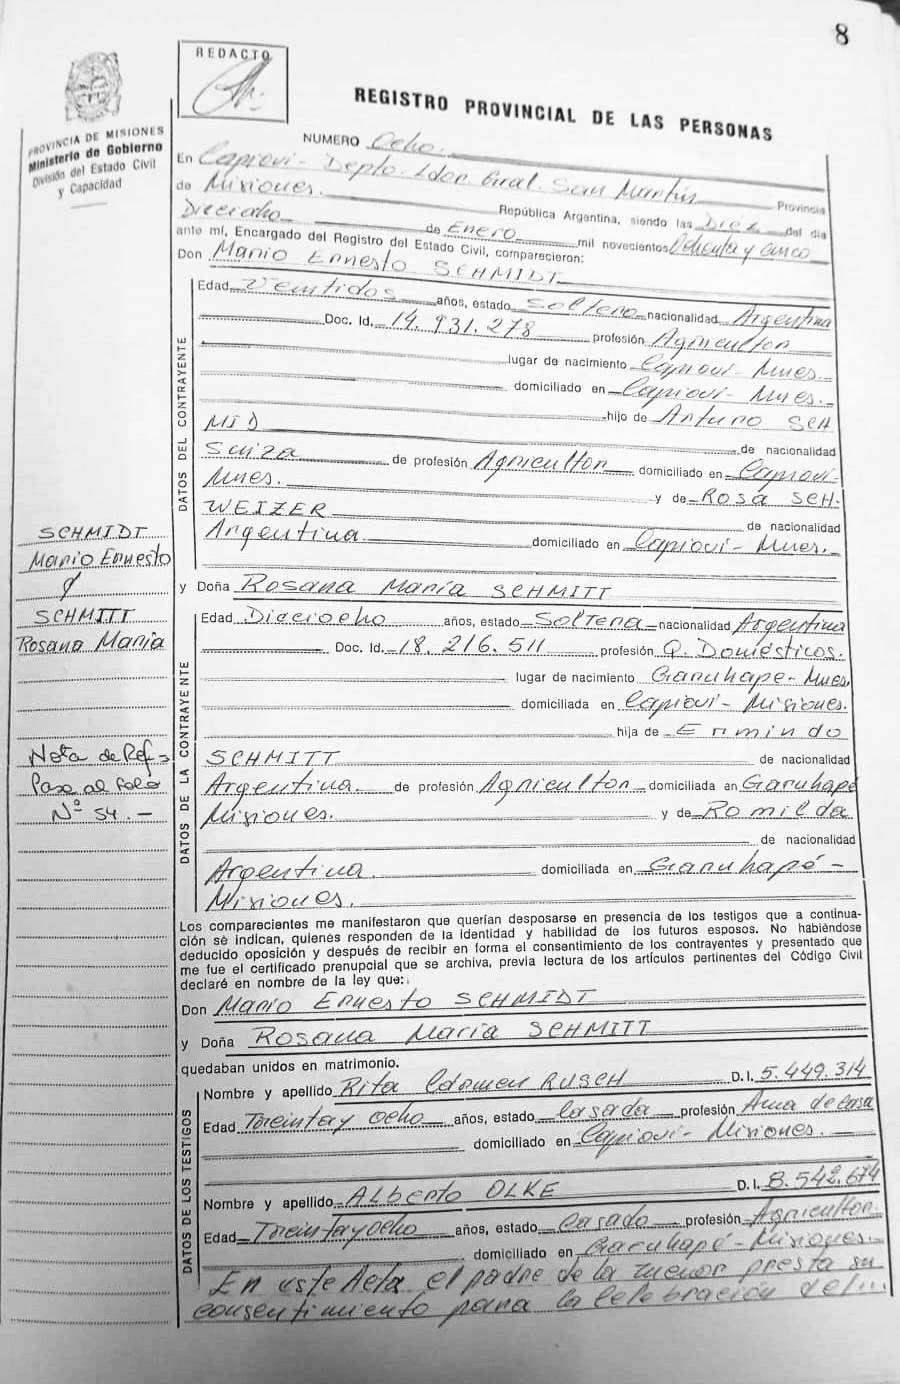 8
REDACTO
PROVINCIA DE MISIONES
Ministerio de Gobierno
División del Estado Civil
y Capacidad
REGISTRO PROVINCIAL DE LAS PERSONAS
NUMERO Ocho.
En Capioví - Depto. Ldor. Gral. San Martín
de Misiones. Provincia
República Argentina, siendo las Diez del día
Dieciocho de Enero mil novecientos Ochenta y cinco
ante mí, Encargado del Registro del Estado Civil, comparecieron:
Don Mario Ernesto SCHMIDT
DATOS DEL CONTRAYENTE
Edad Veintidos años, estado Soltero nacionalidad Argentina
Doc. Id. 14.931.278 profesión Agricultor
lugar de nacimiento Capioví - Mnes.
domiciliado en Capioví - Mnes.
hijo de Arturo SCH
MID de nacionalidad
Suiza de profesión Agricultor domiciliado en Capioví-
Mnes. y de Rosa SCH-
WEIZER de nacionalidad
Argentina domiciliado en Capioví - Mnes.
SCHMIDT
Mario Ernesto
y
SCHMITT
Rosana María
Nota de Ref=
Pase al Folio
Nº 54.-
y Doña Rosana María SCHMITT
DATOS DE LA CONTRAYENTE
Edad Dieciocho años, estado Soltera nacionalidad Argentina
Doc. Id. 18.216.511 profesión Q. Domésticos.
lugar de nacimiento Garuhape - Mnes.
domiciliada en Capioví - Misiones.
hija de Ermindo
SCHMITT de nacionalidad
Argentina. de profesión Agricultor domiciliada en Garuhapé
Misiones. y de Romilda
de nacionalidad
Argentina. domiciliada en Garuhapé -
Misiones.
Los comparecientes me manifestaron que querían desposarse en presencia de los testigos que a continua-
ción se indican, quienes responden de la identidad y habilidad de los futuros esposos. No habiéndose
deducido oposición y después de recibir en forma el consentimiento de los contrayentes y presentado que
me fue el certificado prenupcial que se archiva, previa lectura de los artículos pertinentes del Código Civil
declaré en nombre de la ley que:
Don Mario Ernesto SCHMIDT
y Doña Rosana María SCHMITT
quedaban unidos en matrimonio.
DATOS DE LOS TESTIGOS
Nombre y apellido Rita Carmen RUSCH D.I. 5.449.314
Edad Treinta y Ocho años, estado Casada profesión Ama de Casa
domiciliado en Capioví - Misiones.
Nombre y apellido Alberto OLKE D.I. 8.542.674
Edad Treinta y ocho años, estado Casado profesión Agricultor
domiciliado en Garuhapé - Misiones.-
En este Acta el padre de la menor presta su
consentimiento para la Celebración del...